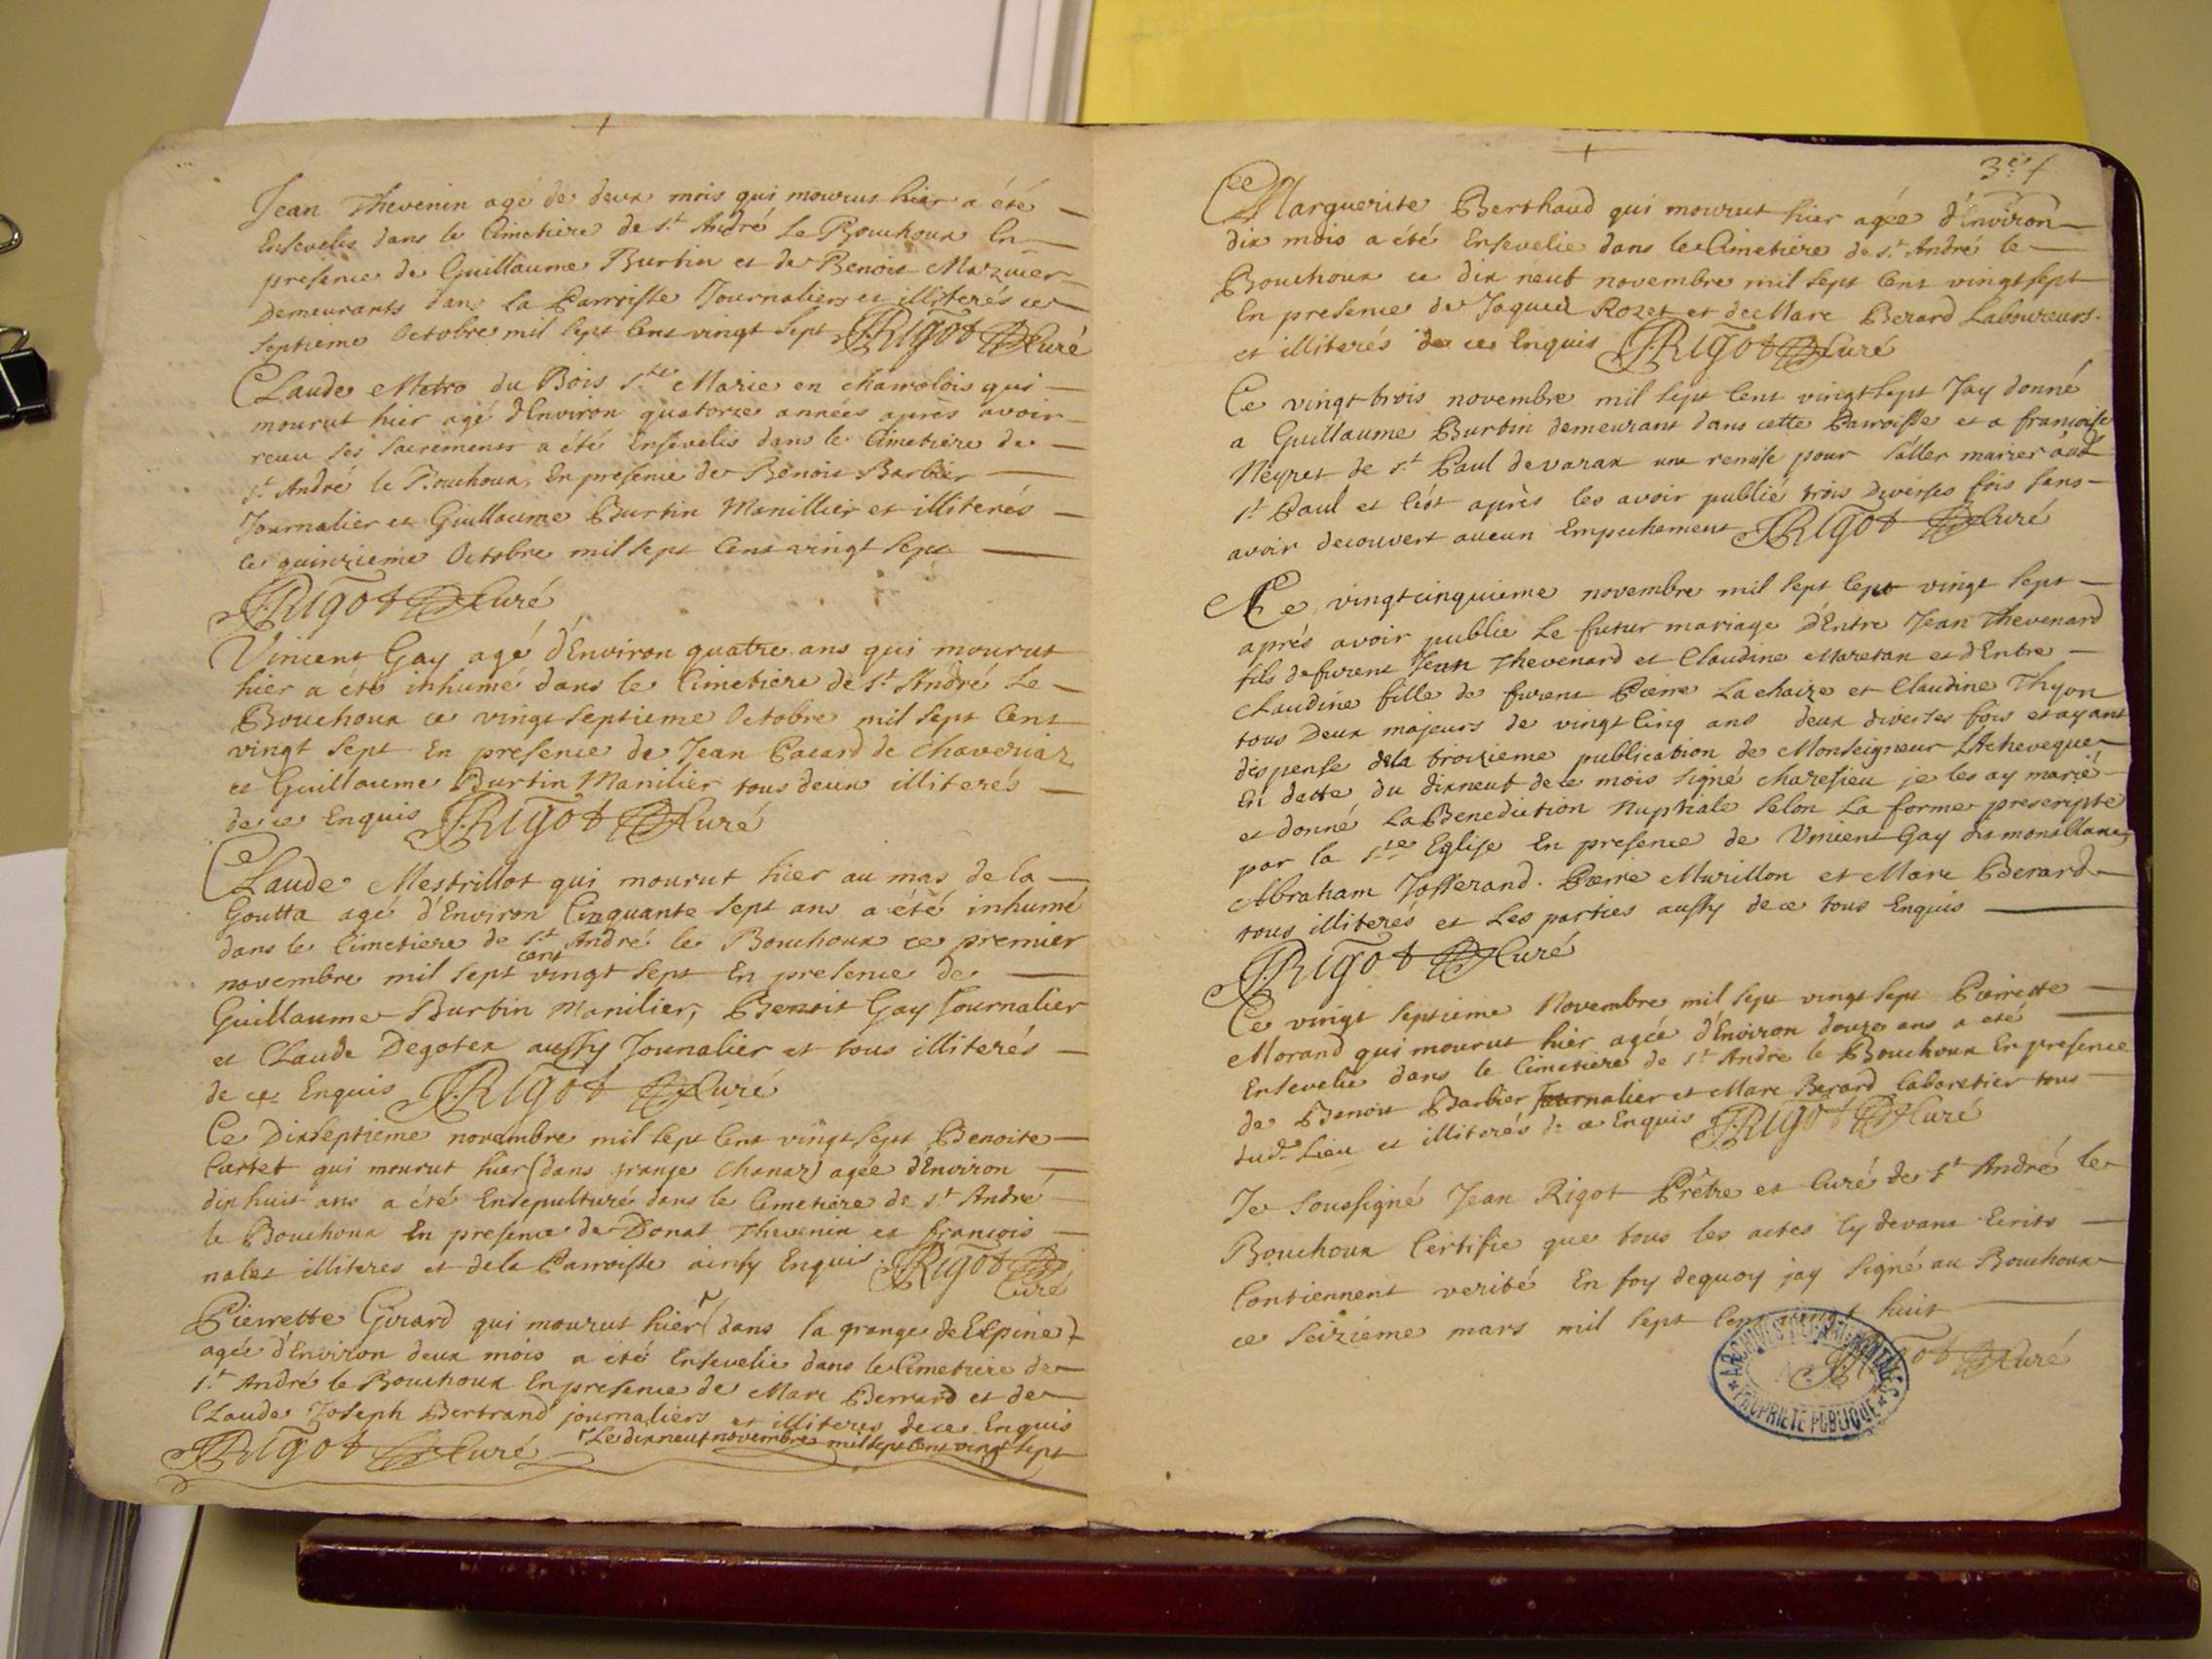 Jean Thevenin agé de deux mois qui mourut hier a été
Ensevelis dans le Cimetiere de St. André Le Bouchoux En
presence de Guillaume Burtin et de Benoit
Demeurants dans la Parroisse Journaliers et illiterés ce
Septieme Octobre mil Sept Cent vingt Sept JRigot Curé
Claude Metro du Bois Ste Marie en charrolois qui
mourut hier agé d'Environ quatorze années après avoir
receu ses sacrements a été Ensevelis dans le Cimetiere de
St. André le Bouchoux, En presence de Benoit Barbier
Journalier et Guillaume Burtin Manillier et illiterés
ce quinzieme Octobre mil sept Cent vingt Sept
JRigot Curé
Vincent Gay agé d'Environ quatre ans qui mourut
hier a été inhumé dans le Cimetiere de St. André Le
Bouchoux ce vingt Septieme Octobre mil Sept Cent
vingt Sept En presence de Jean Pacard de Chaveriaz
et Guillaume Burtin Manilier tous deux illiterés
de ce Enquis JRigot Curé
Claude Mestrillot qui mourut hier au mas de la
Goutta agé d'Environ Cinquante Sept ans a été inhumé
dans le Cimetiere de St. André le Bouchoux ce premier
cent
novembre mil Sept vingt Sept En presence de
Guillaume Burtin Manilier, Benoit Gay Journalier
et Claude Degotex aussy Jounalier et tous illiterés
de ce Enquis JRigot Curé
Ce Dixseptieme novembre mil Sept Cent vingt Sept Benoite
Cartet qui mourut hier (dans grange Chanaz) agée d'Environ
dix huit ans a été Ensepulturé dans le Cimetiere de St. André
le Bouchoux En presence de Donat Thevenin et françois
nalet illiteres et dela Parroisse ainsy Enquis. JRigot
Curé
Pierrette Girard qui mourut hier (dans la grange de Espine)
agée d'Environ deux mois a été Ensevelie dans le Cimetiere de
St. André le Bouchoux En presence de Marc Berrard et de
Claude Joseph Bertrand journaliers et illiteres de ce Enquis
Le dixneuf novembre mil sept cent vingt sept
JRigot Curé
3e f
Marguerite Berthaud qui mourut hier agée d'Environ
dix mois a été Ensevelie dans le Cimetiere de St. André le
Bouchoux ce dix neuf novembre mil Sept Cent vingt sept
En presence de Jaques Rozet et de Marc Berard Laboureurs.
et illiterés de ce Enquis JRigot Curé
Ce vingt trois novembre mil Sept Cent vingt Sept Jay donné
a Guillaume Burtin demeurant dans cette Parroisse et a françoise
Neyret de St. Paul devarax une remise pour s'aller marier aud
St. Paul et c'est après les avoir publié trois Diverses fois sans
avoir decouvert aucun Empechement JRigot Curé
Ce vingtcinquieme novembre mil Sept Cept vingt Sept
après avoir publié Le futur mariage D'Entre Jean Thevenard
fils defurent Jean Thevenard et Claudine Maretan et d'Entre
Claudine fille de furent Pierre Lachaize et Claudine Thyon
tous Deux majeurs de vingt Cinq ans deux diverses fois et ayant
dispense dela troizieme publication de Monseigneur LArcheveque
En datte du dixneuf de ce mois Signé charesieu je les ay marié
et donné La Benediction Nuptiale Selon La forme prescripte
par la Ste Eglise En presence de Vincent Gay
Abraham Josserand. Pierre Murillon et Marc Berard
tous illiteres et Les parties aussy de ce tous Enquis
JRigot Curé
Ce vingt Septieme Novembre mil Sept vingt Sept Pierrette
Morand qui mourut hier agée d'Environ douze ans a eté
Ensevelie dans le Cimetiere de St. André le Bouchoux En presence
de Benoit Barbier Journalier et Marc Berard Cabaretier tous
dud. Lieu et illiterés de ce Enquis JRigot Curé
Je Soussigné Jean Rigot Prêtre et Curé de St. André le
Bouchoux Certifie que tous les actes Cy devant Ecrits
Contiennent verité En foy dequoy jay Signé au Bouchoux
ce Seizieme mars mil Sept Cent vingt huit
JRigot Curé
ARCHIVES DEPARTEMENTALES
PROPRIETE PUBLIQUE